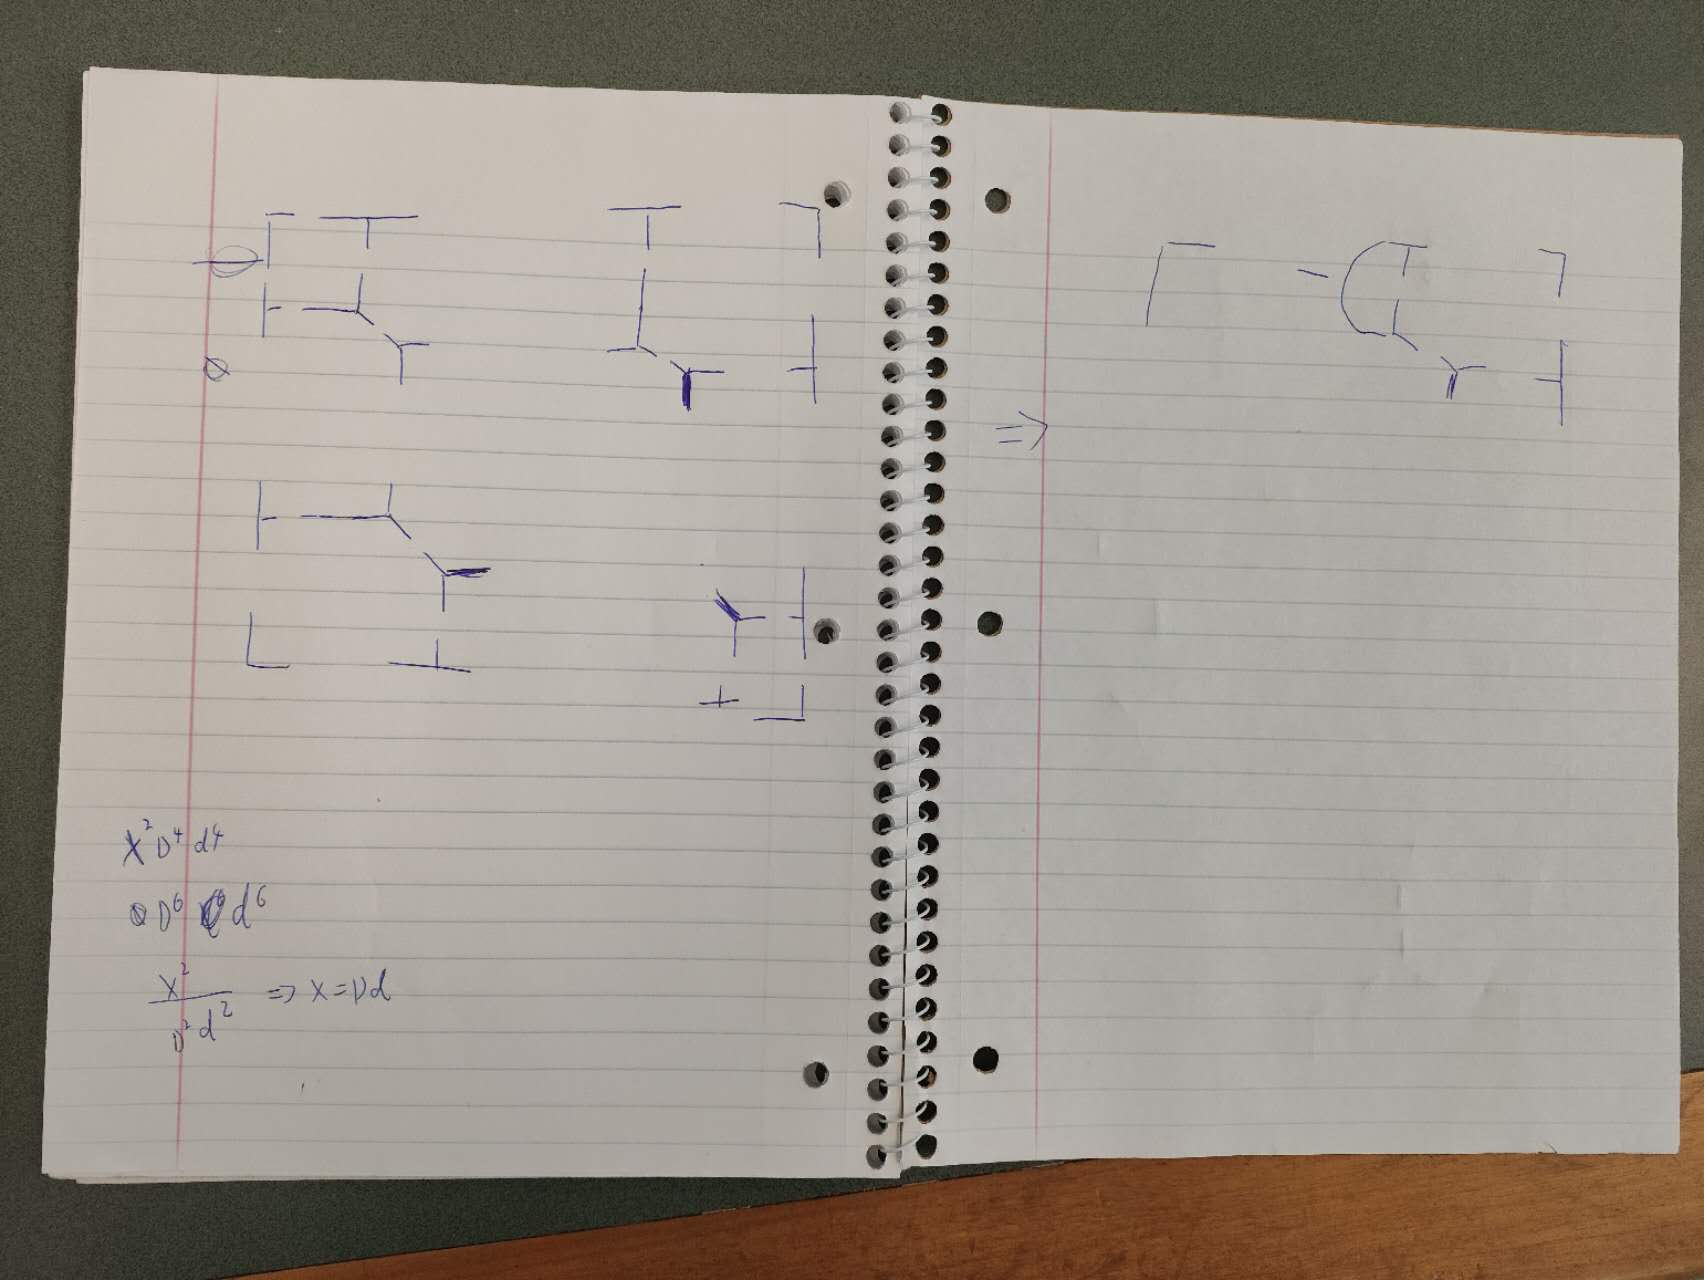 ⇒
X² D⁴ d⁴
D⁶ d⁶
X² / D² d² ⇒ X = Dd